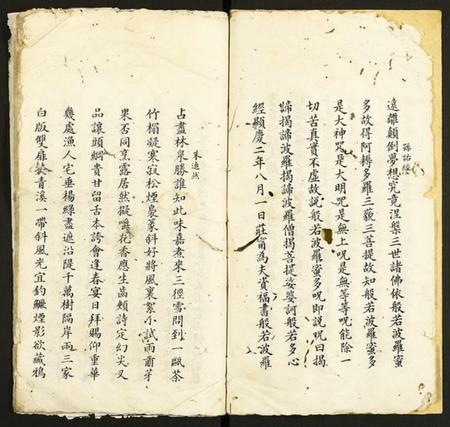 孫詒經
遠離顛倒夢想究竟涅槃三世諸佛依般若波羅蜜
多故得阿耨多羅三藐三菩提故知般若波羅蜜多
是大神咒是大明咒是無上咒是無等等咒能除一
切苦真實不虛故說般若波羅蜜多咒即說咒曰揭
諦揭諦波羅揭諦波羅僧揭諦菩提娑婆訶般若多心
經顯慶二年八月一日莊甯為夫資福書般若波羅
朱逌然
占盡林泉勝誰知此味嘉煮來三徑雪問到一甌茶
竹榻凝寒寂松煙裊篆斜好將風裏絮小試雨前芽
果否同烹露居然擬嚼花香應生齒頰詩定幻尖叉
品讓頭綱貴甘留舌本誇會逢春宴日拜賜仰重華
幾處漁人宅垂楊綠盡遮沿隄千萬樹隔岸兩三家
白版雙扉 青溪一帶斜風光宜釣 煙影欲藏鴉